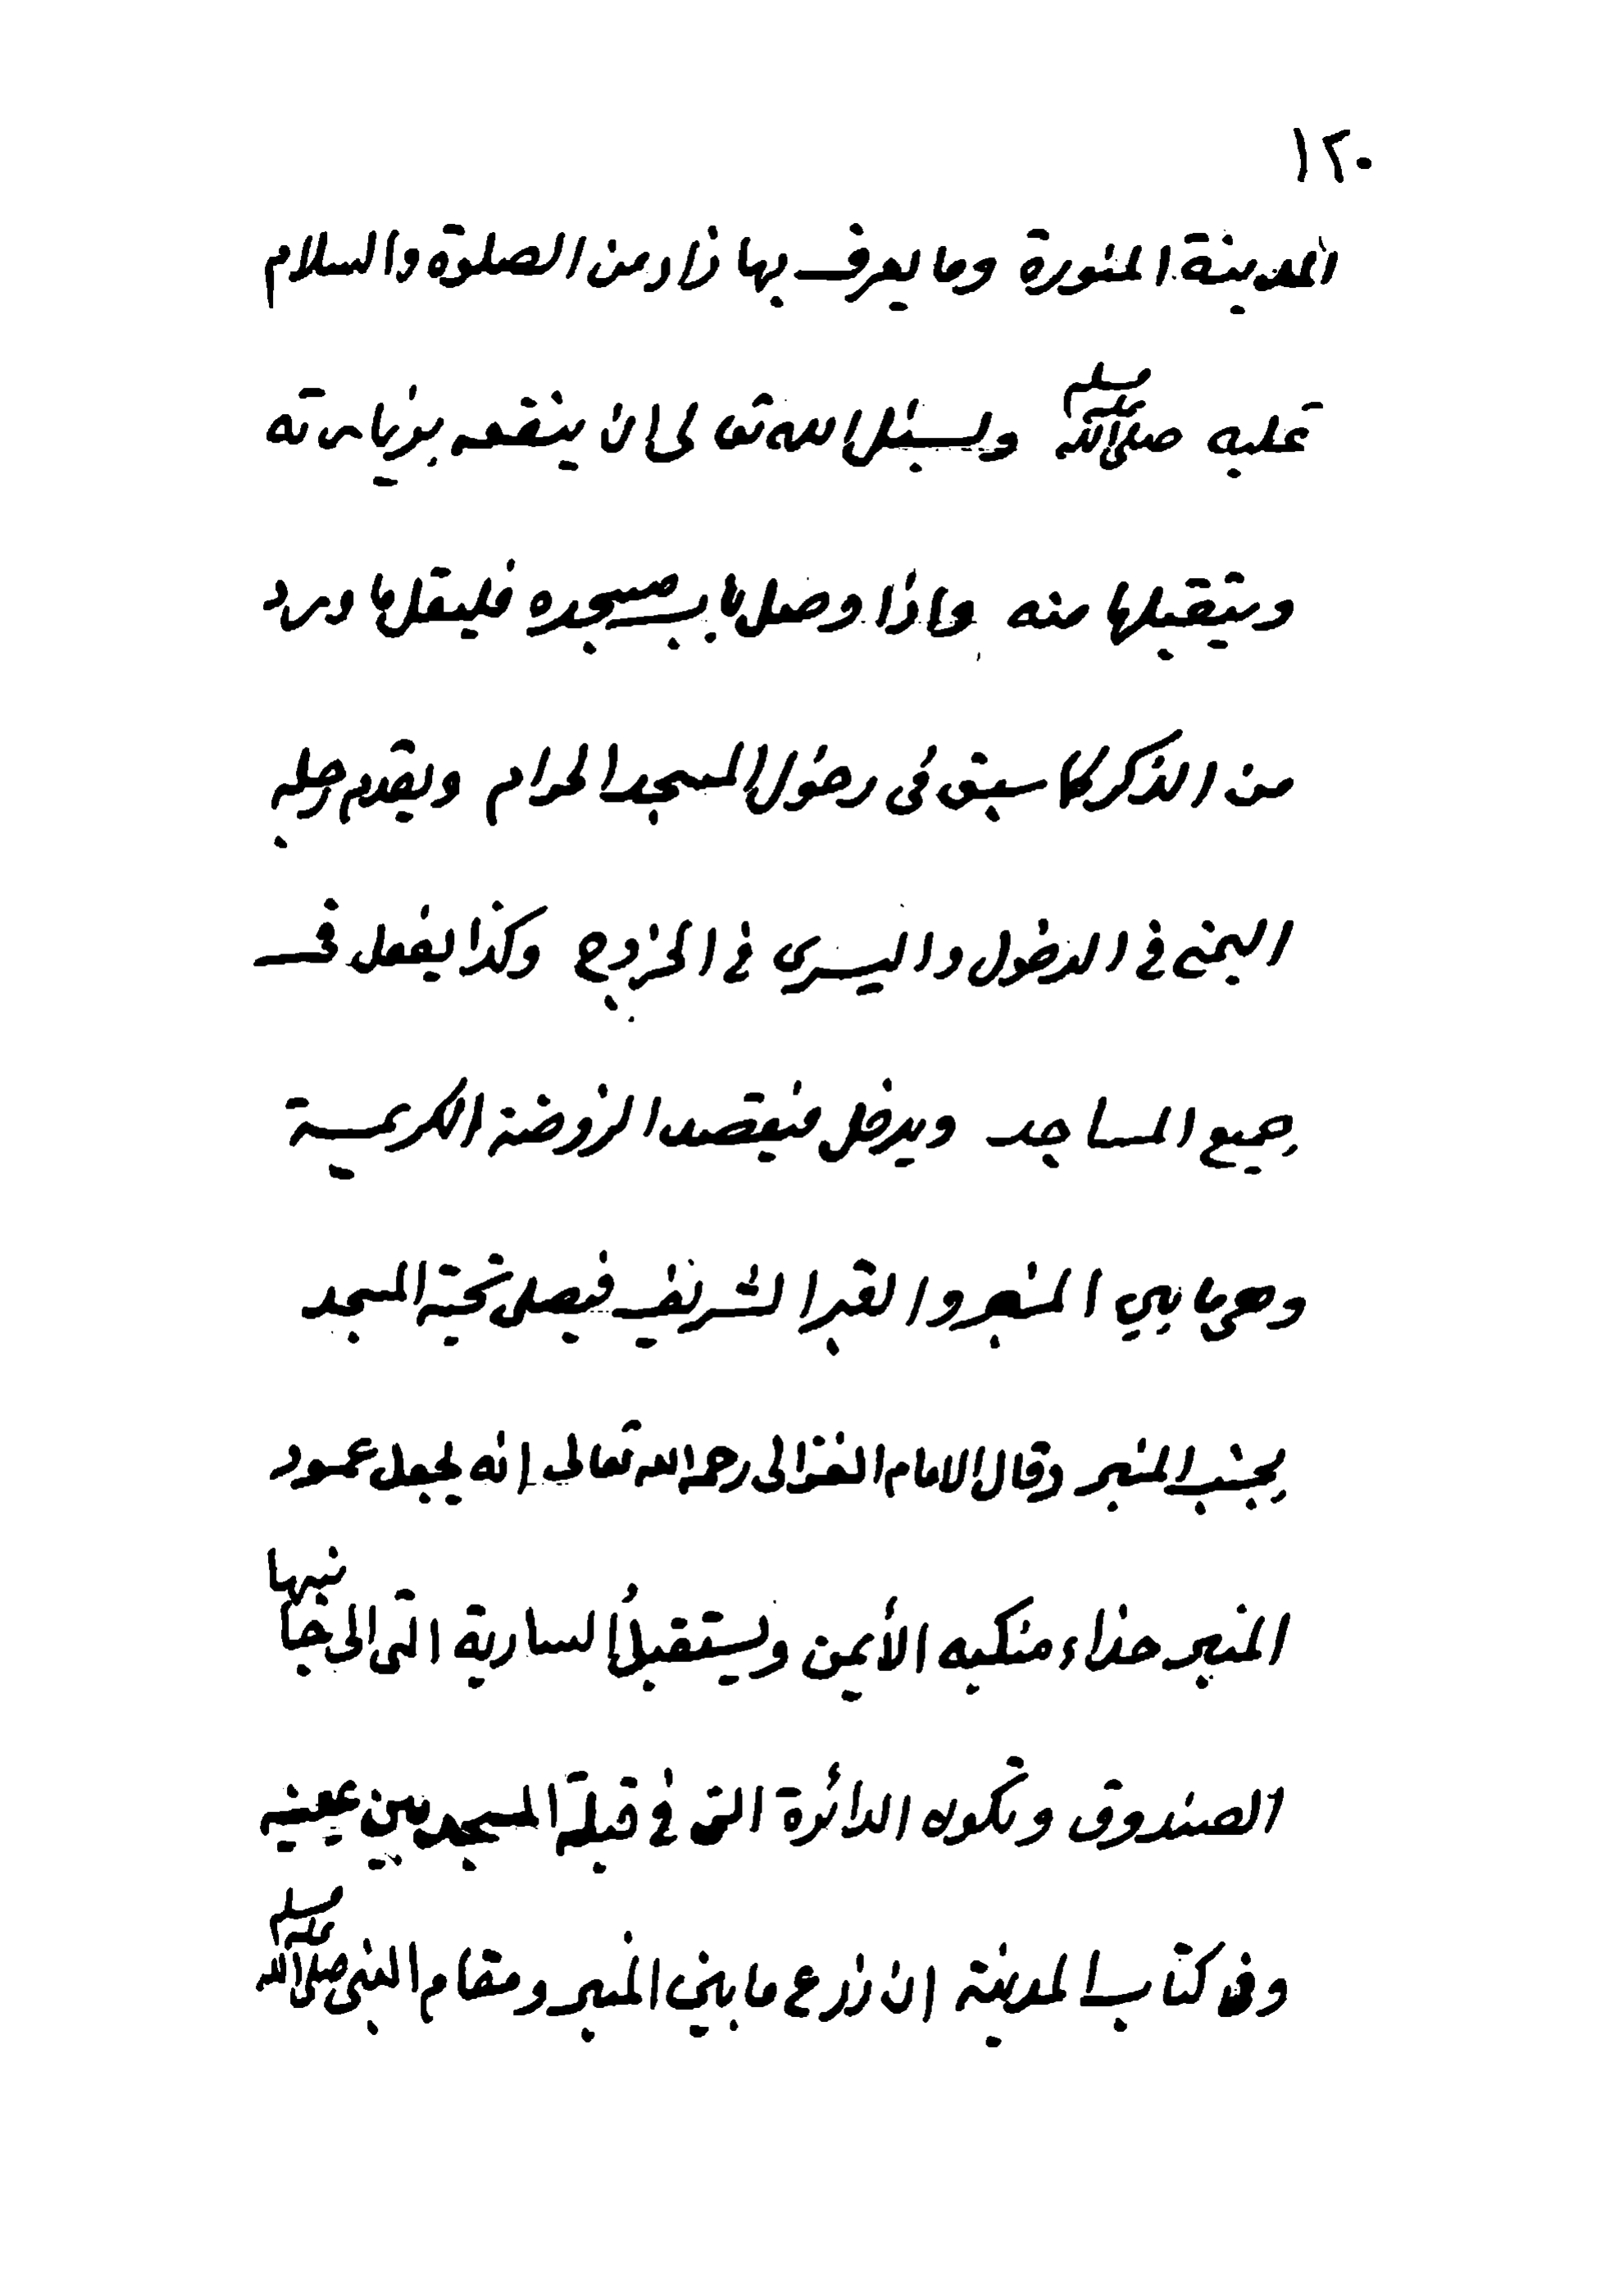 ١٢٠
المدينة المنورة وما يعرف بها زاد من الصلوة والسلام
عليه صلى الله عليه وسلم ويسئل الله تعالى ان ينفعه بزيارته
ويتقبلها منه واذا وصل باب مسجده فليقل ما ورد
من الذكر كما سبق في دخول المسجد الحرام ويقدم رجله
اليمنى في الدخول واليسرى في الخروج وكذا يفعل في
جميع المساجد ويدخل فيقصد الروضة الكريمة
وهي ما بين المنبر والقبر الشريف فيصلى تحية المسجد
بجنب المنبر وقال الامام الغزالى رحمه الله تعالى إنه يجعل عمود
المنبر حذاء منكبه الأيمن ويستقبل السارية التى الى جانبها
الصندوق وتكون الدائرة التى في قبلة المسجد بين عينيه
وفى كتاب المدينة ان ذرع ما بين المنبر ومقام النبى صلى الله عليه وسلم